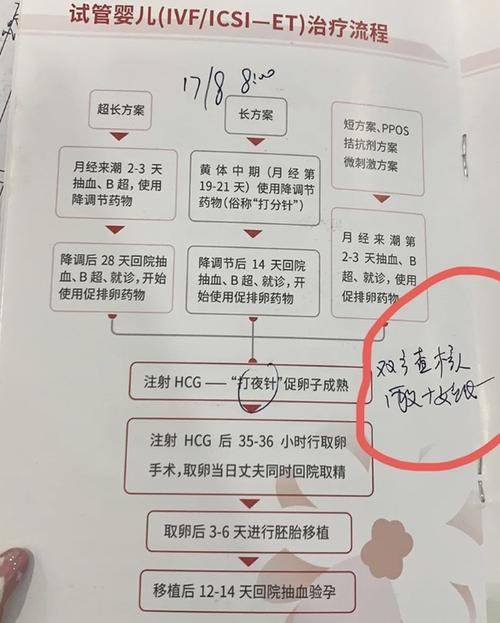 试管婴儿(IVF/ICSI—ET)治疗流程
17/8 8:00
超长方案
月经来潮 2-3 天
抽血、B 超,使用
降调节药物
降调后 28 天回院抽
血、B 超、就诊,开始
使用促排卵药物
长方案
黄体中期(月经第
19-21 天)使用降调节
药物(俗称“打分针”)
降调节后 14 天回院
抽血、B 超、就诊,开
始使用促排卵药物
短方案、PPOS
拮抗剂方案
微刺激方案
月经来潮第
2-3 天抽血、B
超、就诊,使用
促排卵药物
注射 HCG ——“打夜针”促卵子成熟
注射 HCG 后 35-36 小时行取卵
手术,取卵当日丈夫同时回院取精
取卵后 3-6 天进行胚胎移植
移植后 12-14 天回院抽血验孕